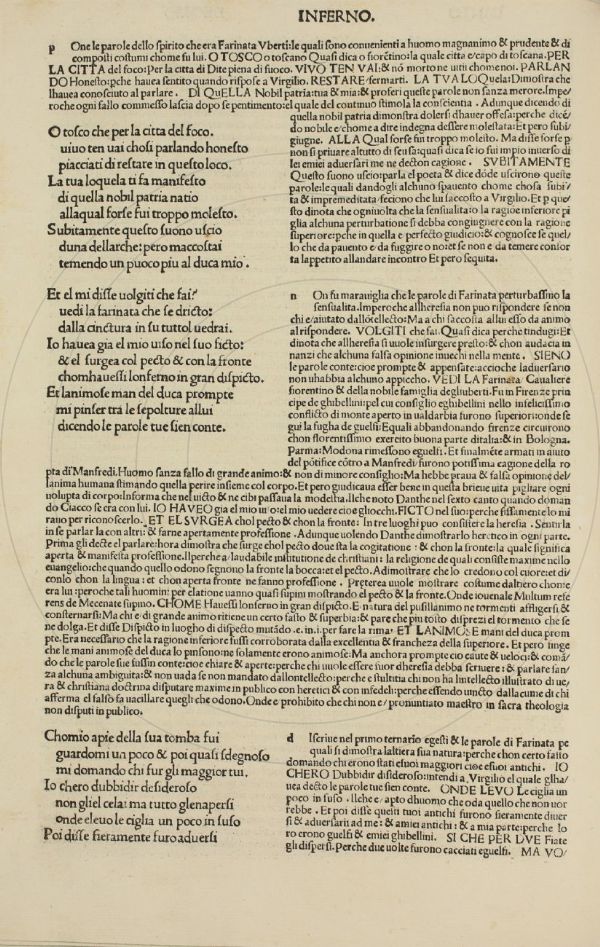 INFERNO.
p One le parole dello spirito che era Farinata Vberti: le quali sono conuenienti a huomo magnanimo & prudente & di
composti costumi chome fu lui. O TOSCO o toscano Quasi dica o fiorẽtino: la quale citta e capo di toscana. PER
LA CITTA del foco: Per la citta di Dite piena di fuoco. VIVO TEN VAI: & nõ morto ne uitii chome noi. PARLAN
DO Honesto: pche hauea sentito quando rispose a Virgilio. RESTARE fermarti. LA TVA LOQuela: Dimostra che
lhauea conosciuto al parlare. DI QVELLA Nobil patria: tua & mia: & proferi queste parole non sanza merore. Impe/
roche ogni fallo commesso lascia dopo se pentimento: el quale del continuo stimola la conscientia. Adunque dicendo di
quella nobil patria dimonstra dolersi dhauer offesa: perche dicẽ/
do nobile e chome a dire indegna dessere molestata: Et pero subi/
giugne. ALLA Qual forse fui troppo molesto. Ma disse forse p
non si priuare altutto di scusa: quasi dica se io fui impio inuerso di
lei emiei aduersari me ne decton cagione. SVBITAMENTE
Questo suono uscio: parla el poeta & dice dõde uscirono queste
parole: le quali dandogli alchuno spauento chome chosa subi/
ta & impremeditata feciono che lui saccosto a Virgilio. Et p que/
sto dinota che ogniuolta che la sensualita: o la ragiõe inferiore pi
glia alchuna perturbatione si debba congiugnere con la ragione
superiore: pche in quella e perfecto giudicio: & cognosce se quel/
lo che da pauento e da fuggire o no: et se non e da temere confor
ta lappetito allandare incontro Et pero sequita.
O tosco che per la citta del foco.
uiuo ten uai chosi parlando honesto
piacciati di restare in questo loco.
La tua loquela ti fa manifesto
di quella nobil patria natio
allaqual forse fui troppo molesto.
Subitamente questo suono uscio
duna dellarche: pero maccostai
temendo un puoco piu al duca mio.
Et el mi disse uolgiti che fai?
uedi la farinata che se dricto:
dalla cinctura in su tuttol uedrai.
Io hauea gia el mio uiso nel suo ficto:
& el surgea col pecto & con la fronte
chomhauessi lonferno in gran dispicto.
Et lanimose man del duca prompte
mi pinser tra le sepolture allui
dicendo le parole tue sien conte.
n On fu marauiglia che le parole di Farinata perturbassino la
sensualita. Imperoche allheresia non puo rispondere se non
chi e aiutato dallo ĩtellecto: Ma a chi saccosta allui esso da animo
al rispondere. VOLGITI che fai. Quasi dica perche tindugi: Et
dinota che allheresia si uuole insurgere presto: & chon audacia in
nanzi che alchuna falsa opinione inuechi nella mente. SIENO
le parole conte: cioe prompte & appensate: accioche laduersario
non uhabbia alchuno appiccho. VEDI LA Farinata. Caualiere
fiorentino & della nobile famiglia degliuberti. Fu in Firenze prin
cipe de ghibellini: pel cui consiglio eghibellini nello infelicissimo
conflicto di monte aperto in ualdarbia furono superiori: onde se
gui la fugha de guelfi: Equali abbandonando firenze circuirono
chon florentissimo exercito buona parte ditalia: & in Bologna.
Parma: Modona rimessono eguelfi. Et finalmẽte armati in aiuto
del põtifice cõtro a Manfredi: furono potissima cagione della ro
pta di Manfredi. Huomo sanza fallo di grande animo: & non di minore consiglio: Ma hebbe praua & falsa opinione del/
lanima humana stimando quella perire insieme col corpo. Et pero giudicaua esser bene in questa brieue uita pigliare ogni
uolupta di corpo: Informa che nel uicto & ne cibi passaua la modestia. Ilche noto Danthe nel sexto canto quando doman
do Ciacco se era con lui. IO HAVEO gia el mio uiso: el mio uedere cioe gliocchi. FICTO nel suo: perche fissamente lo mi
rauo per riconoscerlo. ET EL SVRGEA chol pecto & chon la fronte: In tre luoghi puo consistere la heresia. Sentirla
in se parlar la con altri: & farne apertamente professione. Adunque uolendo Danthe dimostrarlo heretico in ogni parte.
Prima gli decte el parlare: hora dimostra che surge chol pecto doue sta la cogitatione: & chon la fronte: la quale significa
aperta & manifesta professione. Ilperche a laudabile institutione de christiani: la religione de quali consiste maxime nello
euangelio: che quando quello odono segnono la fronte la bocca: et el pecto. A dimostrare che lo credono col cuore: et di/
conlo chon la lingua: et chon aperta fronte ne fanno professione. Preterea uuole mostrare costume daltiero chome
era lui: peroche tali huomini: per elatione uanno quasi supini mostrando el pecto & la fronte. Onde iouenale Multum refe
rens de Mecenate supino. CHOME Hauessi lonferno in gran dispicto. E natura del pusillanimo ne tormenti affligersi &
consternarsi: Ma chi e di grande animo ritiene un certo fasto & superbia: & pare che piu tosto disprezi el tormento che se
ne dolga. Et disse Dispicto in luogho di dispecto mutãdo .e. in .i. per fare la rima. ET LANIMOSE mani del duca prom
pte. Era necessario che la ragione inferiore fussi corroborata dalla excellentia & francheza della superiore. Et pero finge
che le mani animose del duca lo pinsono: ne solamente erono animose: Ma anchora prompte cio e aute & ueloci: & comã/
do che le parole sue fussin conte: cioe chiare & aperte: perche chi uuole essere fuor dheresia debba scriuere: & parlare san/
za alchuna ambiguita: & non uada se non mandato dallontellecto: perche e stultitia chi non ha lintellecto illustrato di ue/
ra & christiana doctrina disputare maxime in publico con heretici & con infedeli: perche essendo uincto dallacume di chi
afferma el falso fa uacillare quegli che odono. Onde e prohibito che chi non e pronuntiato maestro in sacra theologia
non disputi in publico.
Chomio apie della sua tomba fui
guardomi un poco & poi quasi sdegnoso
mi domando chi fur gli maggior tui.
Io chero dubbidir desideroso
non gliel celai: ma tutto glenapersi
onde eleuo le ciglia un poco in suso
Poi disse fieramente furo aduersi
d Iscriue nel primo ternario egesti & le parole di Farinata pe
quali si dimostra laltiera sua natura: perche chon certo fasto
domando chi erono stati esuoi maggiori cioe esuoi antichi. IO
CHERO Dubbidir disideroso: intendi a Virgilio el quale glha/
uea decto le parole tue sien conte. ONDE LEVO Le ciglia un
poco in suso. Ilche e apto dhuomo che oda quello che non uor
rebbe. Et poi disse questi tuoi antichi furono fieramente diuer
si & aduersarii ad me: & amiei antichi: & a mia parte: perche lo
ro erono guelfi & emiei ghibellini. SI CHE PER DVE Fiate
gli dispersi. Perche due uolte furono cacciati eguelfi. MA VO/